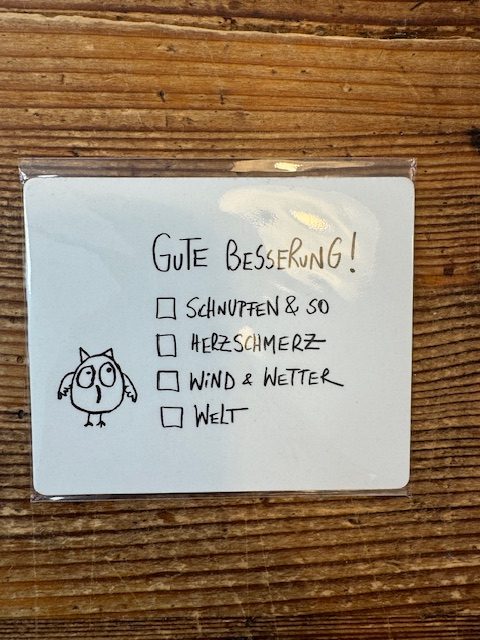 GUTE BESSERUNG!
SCHNUPFEN & SO
HERZSCHMERZ
WIND & WETTER
WELT